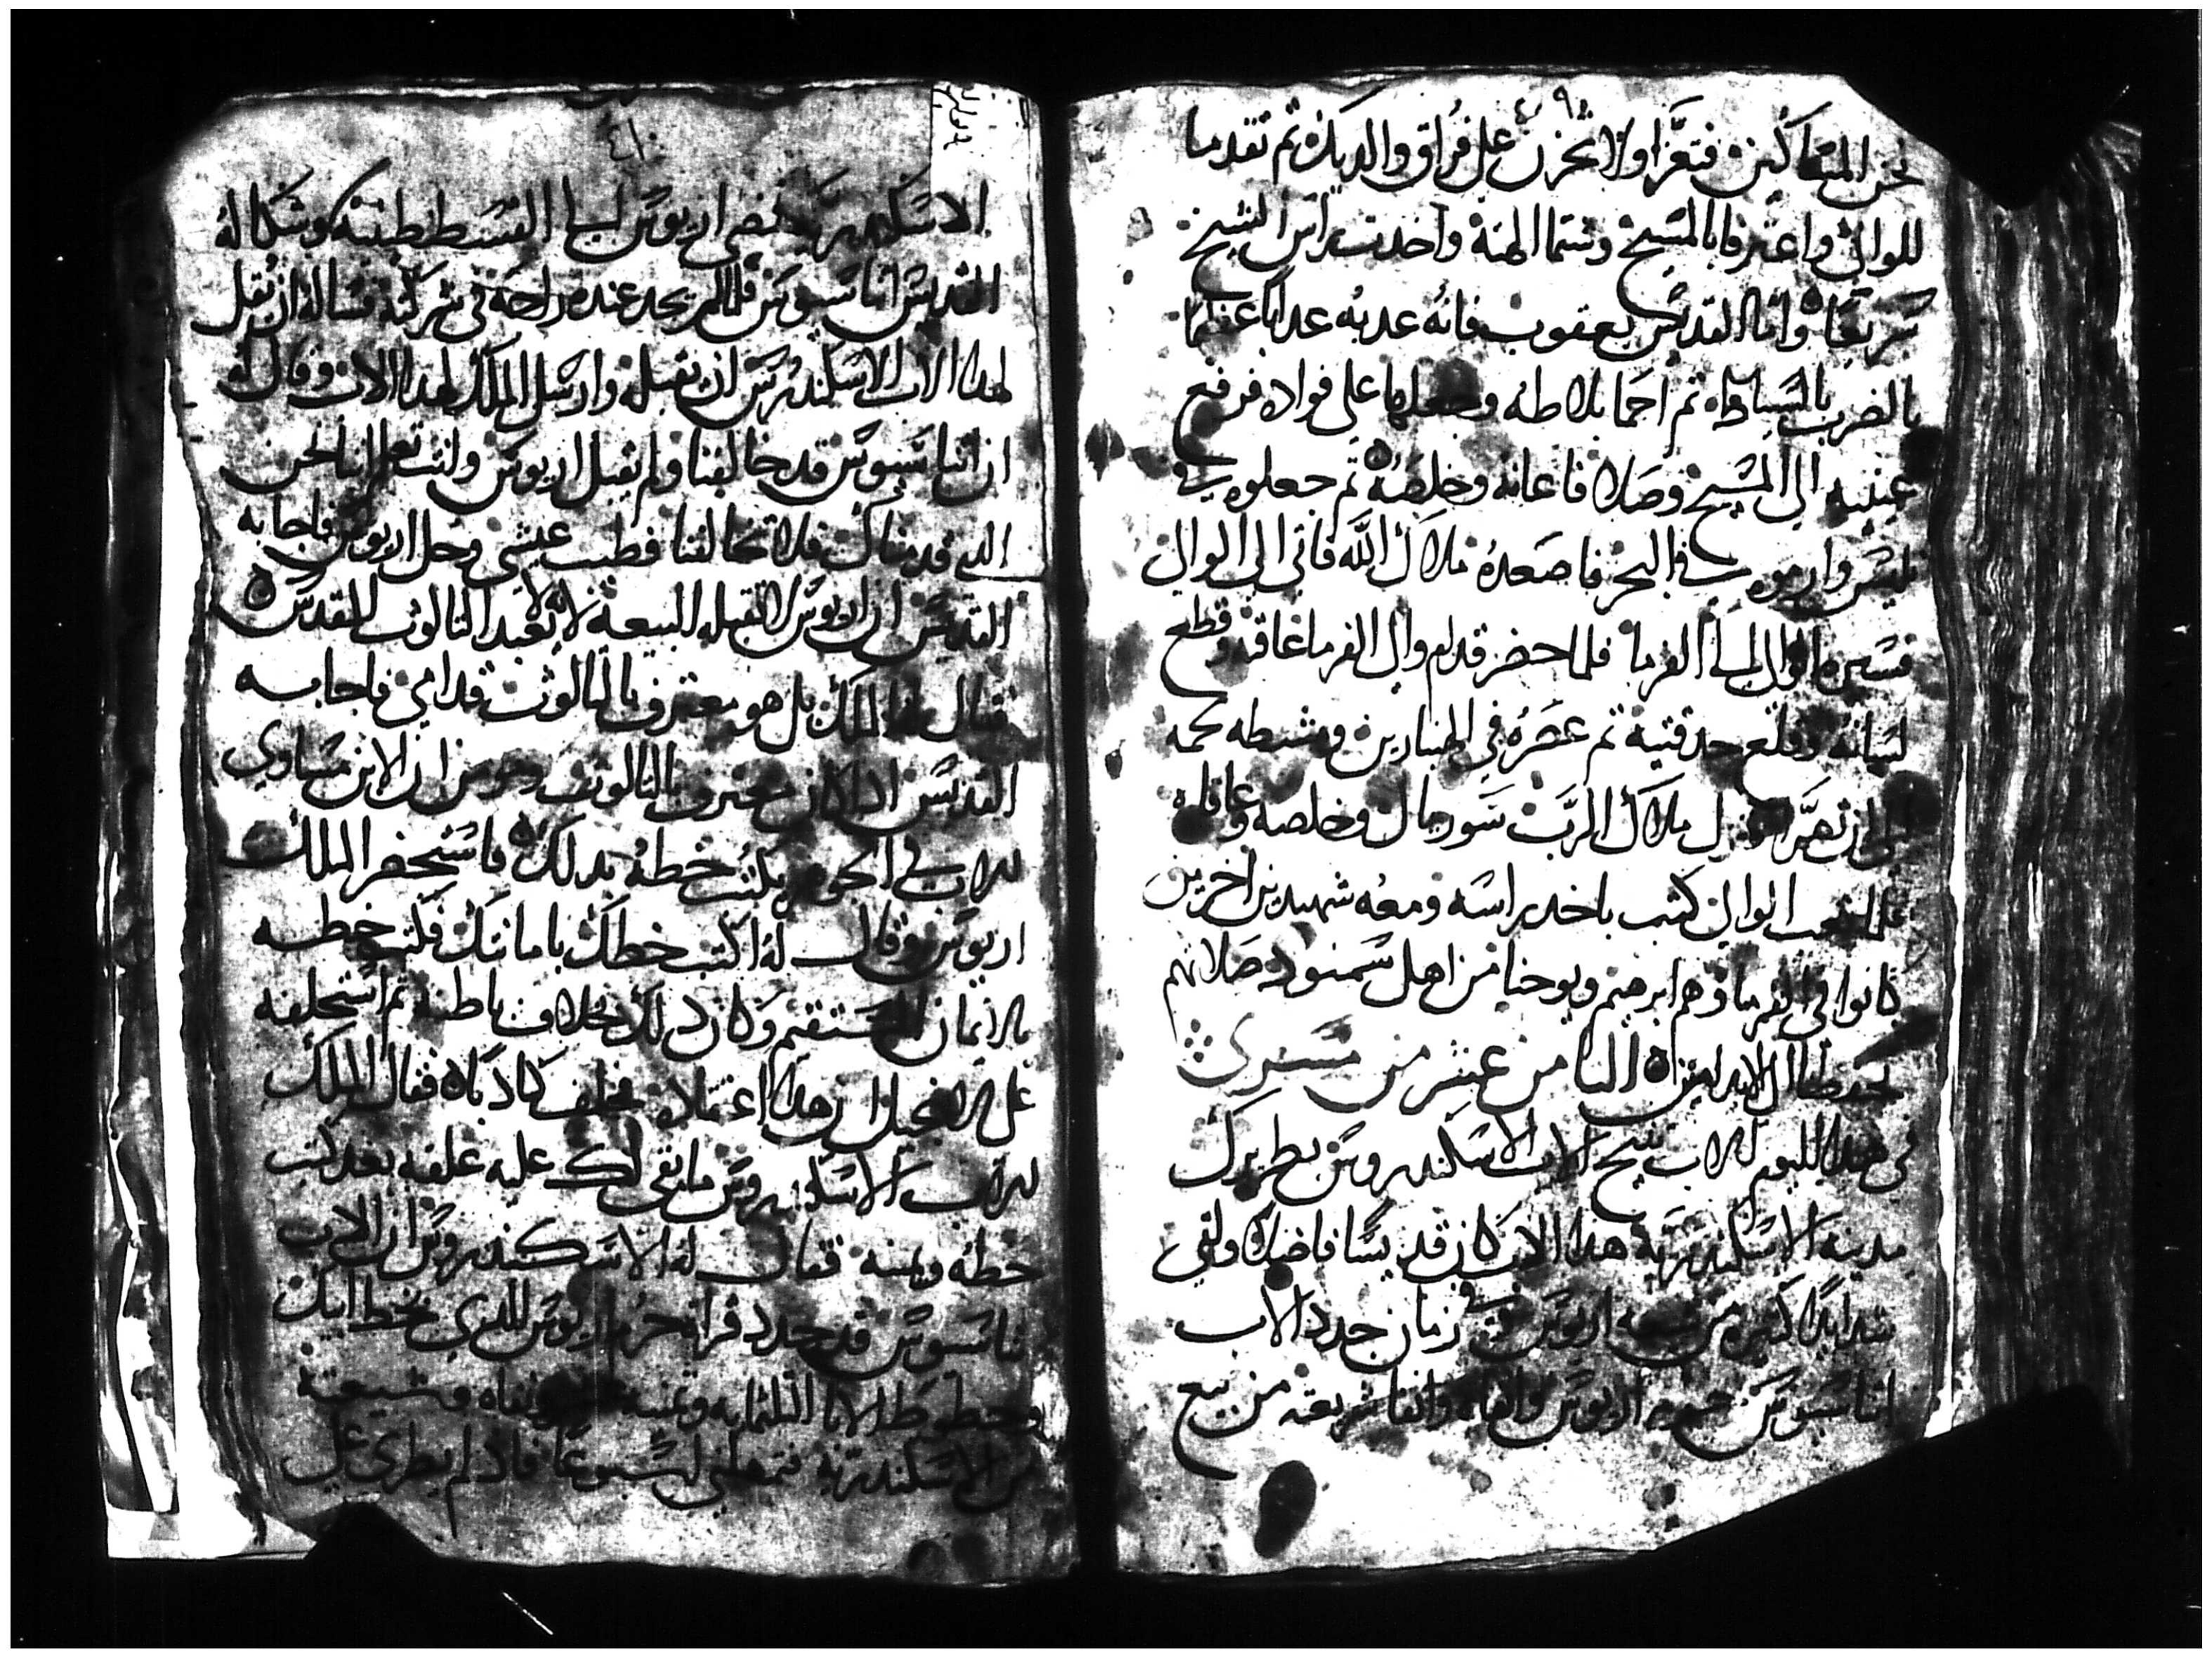 ٤٠٩
نحن المتماكين فتعزا ولا تحزن على فراق والديك ثم تقدما
للوالي واعترفا بالمسيح وشتما الهته واخدت راس الشيخ
سريعا واما القديس يعقوب فانه عدبه عدابا عظيما
بالضرب بالسياط ثم احما بلاطه وجعلها على فواده فرفع
عينيه الي المسيح وصلا فاعانه وخلصه ثم جعلوه في
وارموه في البحر فاصعده ملاك الله فاتي الي الوالي
فسيره الوالي الي الفرما فلما حضر قدام والي الفرما عاقبه وقطع
لسانه وقلع حدقتيه ثم عصره في الهنبازين ومشطه لحمه
الي ان تهرا نزل ملاك الرب سوريال وخلصه وعافاه
فلما تعب الوالي كتب باخد راسه ومعه شهيدين اخرين
كانوا في الفرما وهم ابرهيم ويوحنا من اهل سمنود صلاتهم
تحفظنا الي الابد امين الثامن عشر من مسري
في هدا اليوم الاب تنيح الاب الاسكندروس بطريرك
مدينة الاسكندرية هدا الاب كان قديسا فاضلا ولقي
شدايدا كتيره من شيعه اريوس في زمان جدد الاب
اتناسيوس حرم اريوس وانفا شيعته من بيع
٤١٠
الاسكندرية فمضي اريوس ليا القسطنطينية وشكا له
القديس اتناسيوس فلما لم يجد عنده راحة في شركته فساله ان يقبل
لهدا الاب الاسكندرس ان تقبله وارسل الملك لهدا الاب وقال له
ان اتناسيوس قد خالفنا ولم يقبل اريوس وانت تعلم انا نحن
الدي قدمناك فلا تخالفنا فطيب عيشي وحل اريوس فاجابه
القديس ان اريوس لا تقبله البيعة لانه لا يعبد التالوت المقدس
فقال له الملك بل هو معترف بالتالوت قدامي فاجابه
القديس ادا كان معترف بالتالوت ويومن ان الابن مساوي
للاب في الجوهر يكتب خطه بدلك فاستحضر الملك
اريوس وقال له اكتب خطك بامانتك فكتب خطه
بالايمان المستقيم وكان دلك بخلاف باطنه تم استحلفه
على الانجيل ان هدا اعتقاده فحلف كادبا فقال الملك
للاب الاسكندروس ما بقي لك عليه علقه بعد كتب
خطه ويمينه فقال له الاسكندروس ان الاب
تناسيوس قد جدد قرانه حرم اريوس للدي بخط ابيك
وخطوط الابا التلتمايه وتمنيه ونفاه وشيعته
من الاسكندرية فتمهلني اسبوعا فاد لم يطري علي